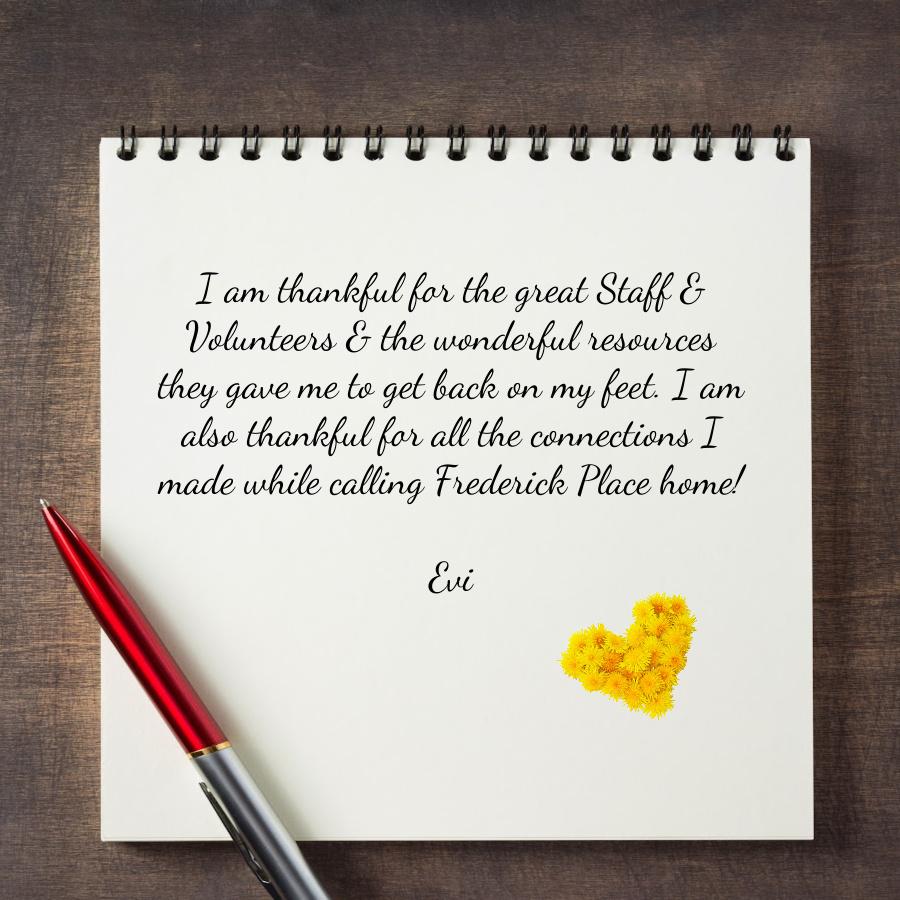 I am thankful for the great Staff &
Volunteers & the wonderful resources
they gave me to get back on my feet. I am
also thankful for all the connections I
made while calling Frederick Place home!
Evi